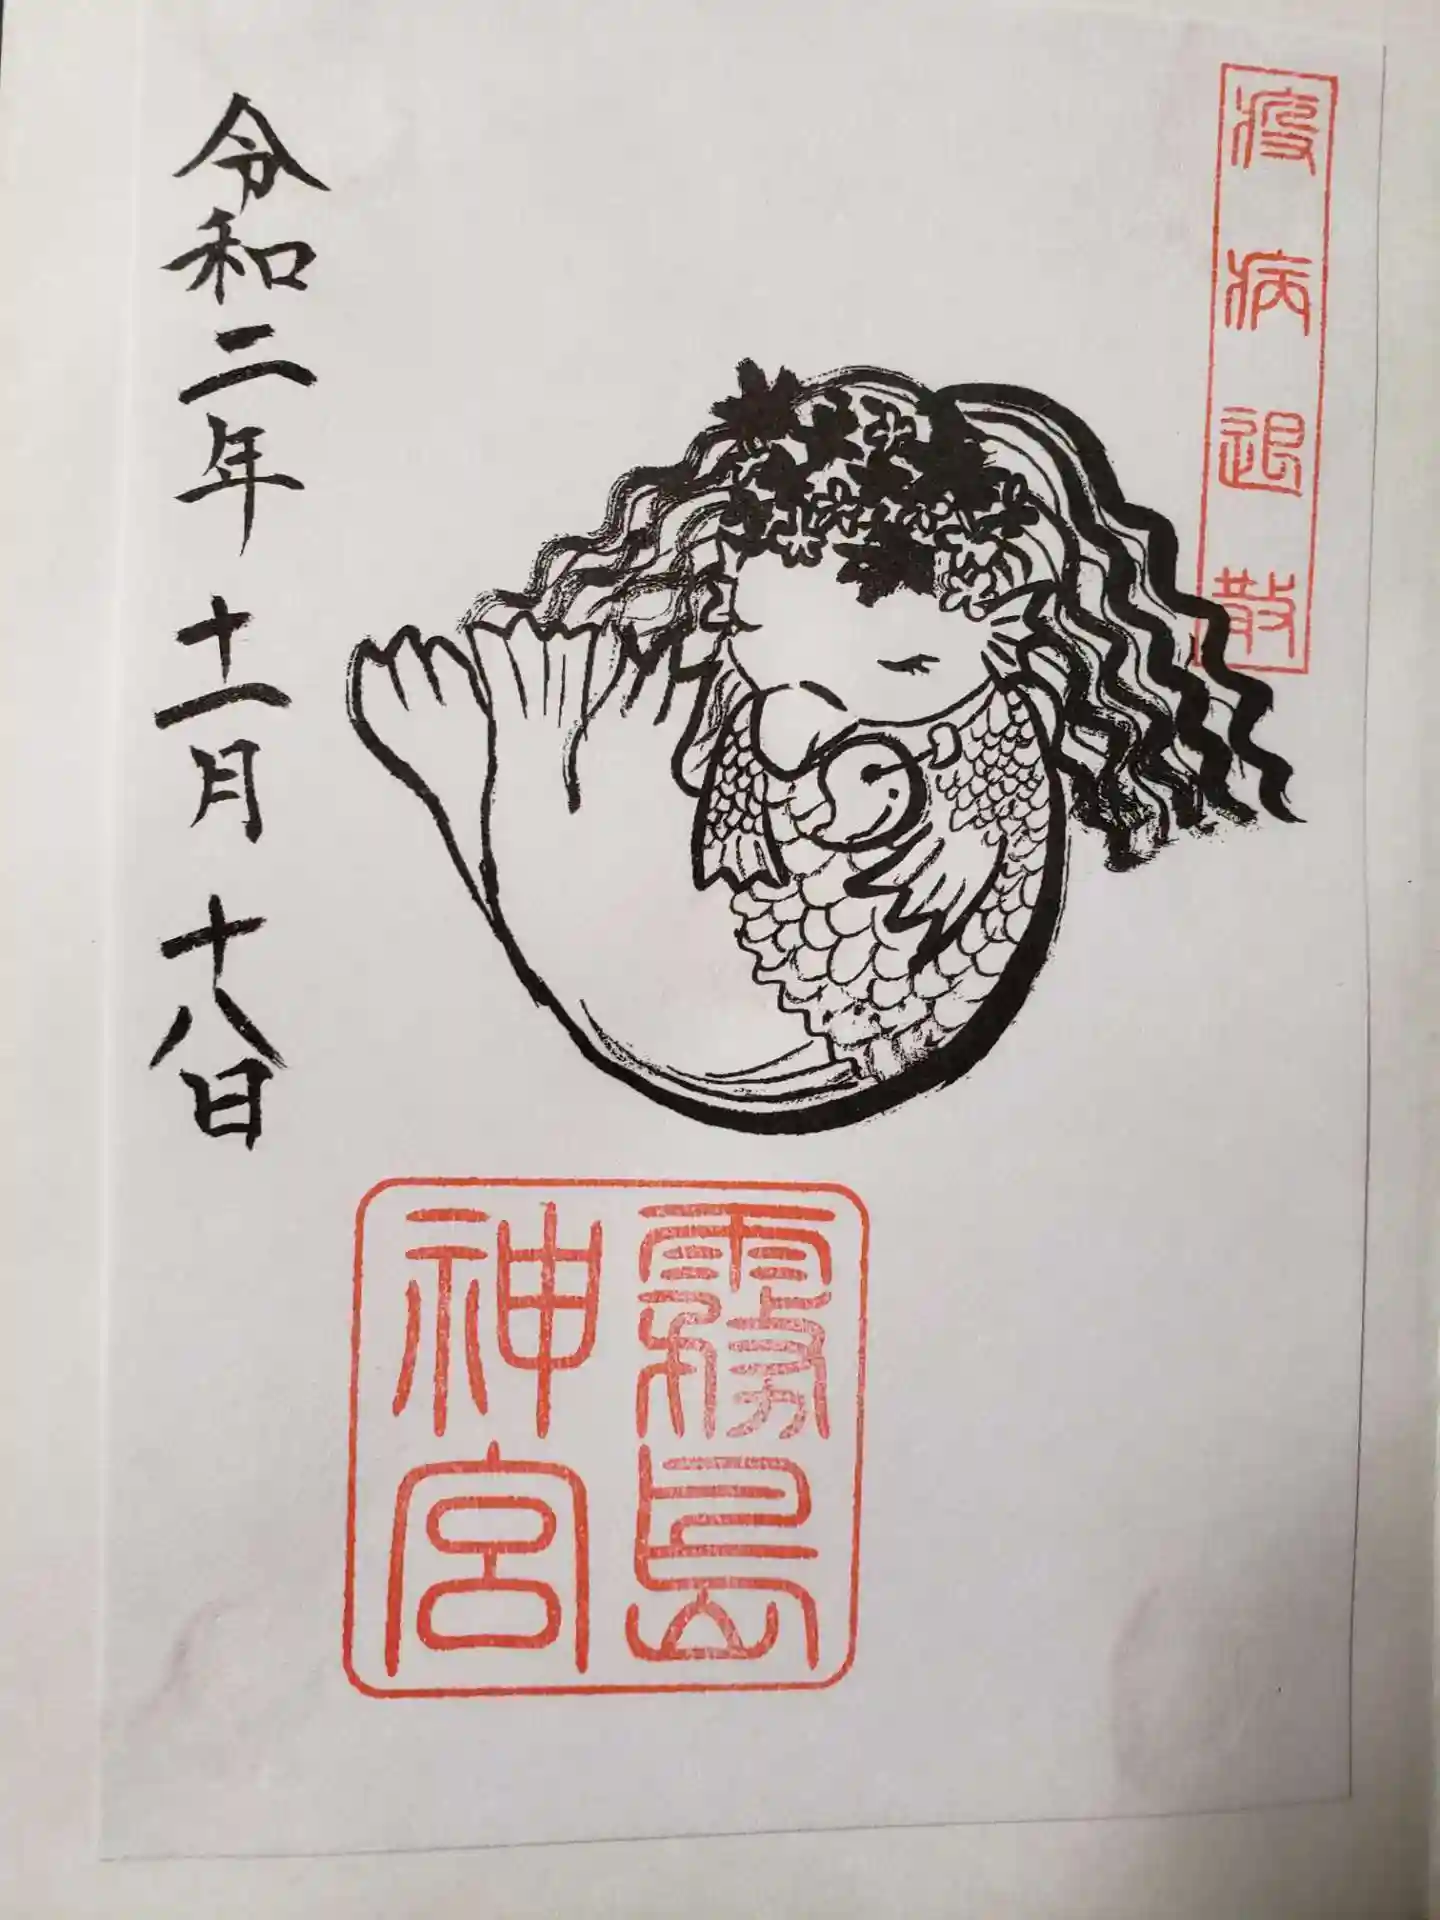 疫病退散
霧島
神宮
令和二年十一月十八日